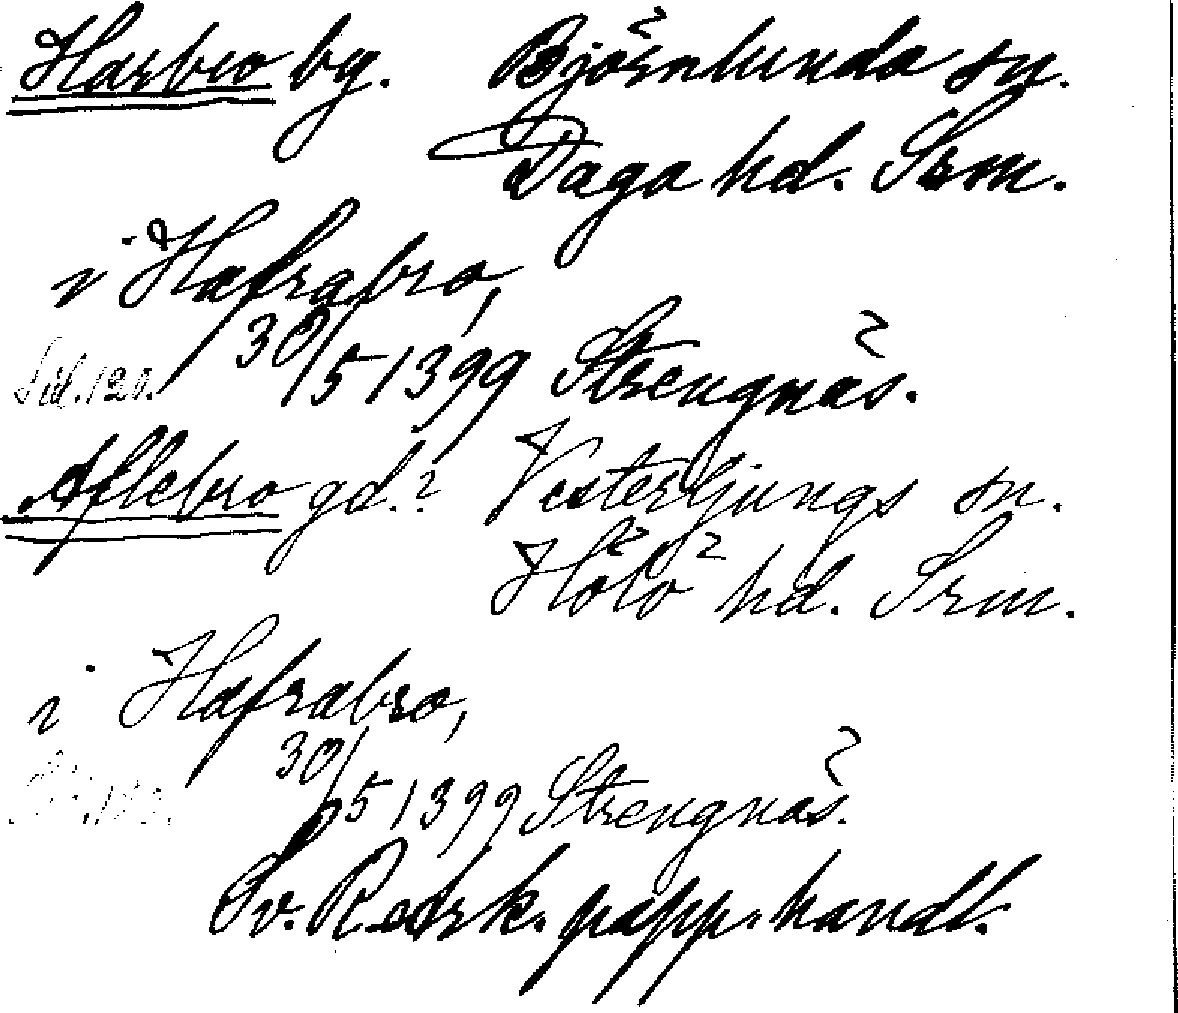 Harbro by. Björnlunda sn.
Daga hd. Srm.
i Hafrabro,
30/5 1399 Strengnäs.
Aflebro gd.? Vesterljungs sn.
Hölö hd. Srm.
i Hafrabro,
30/5 1399 Strengnäs.
Sv. Rark. papp. handl.